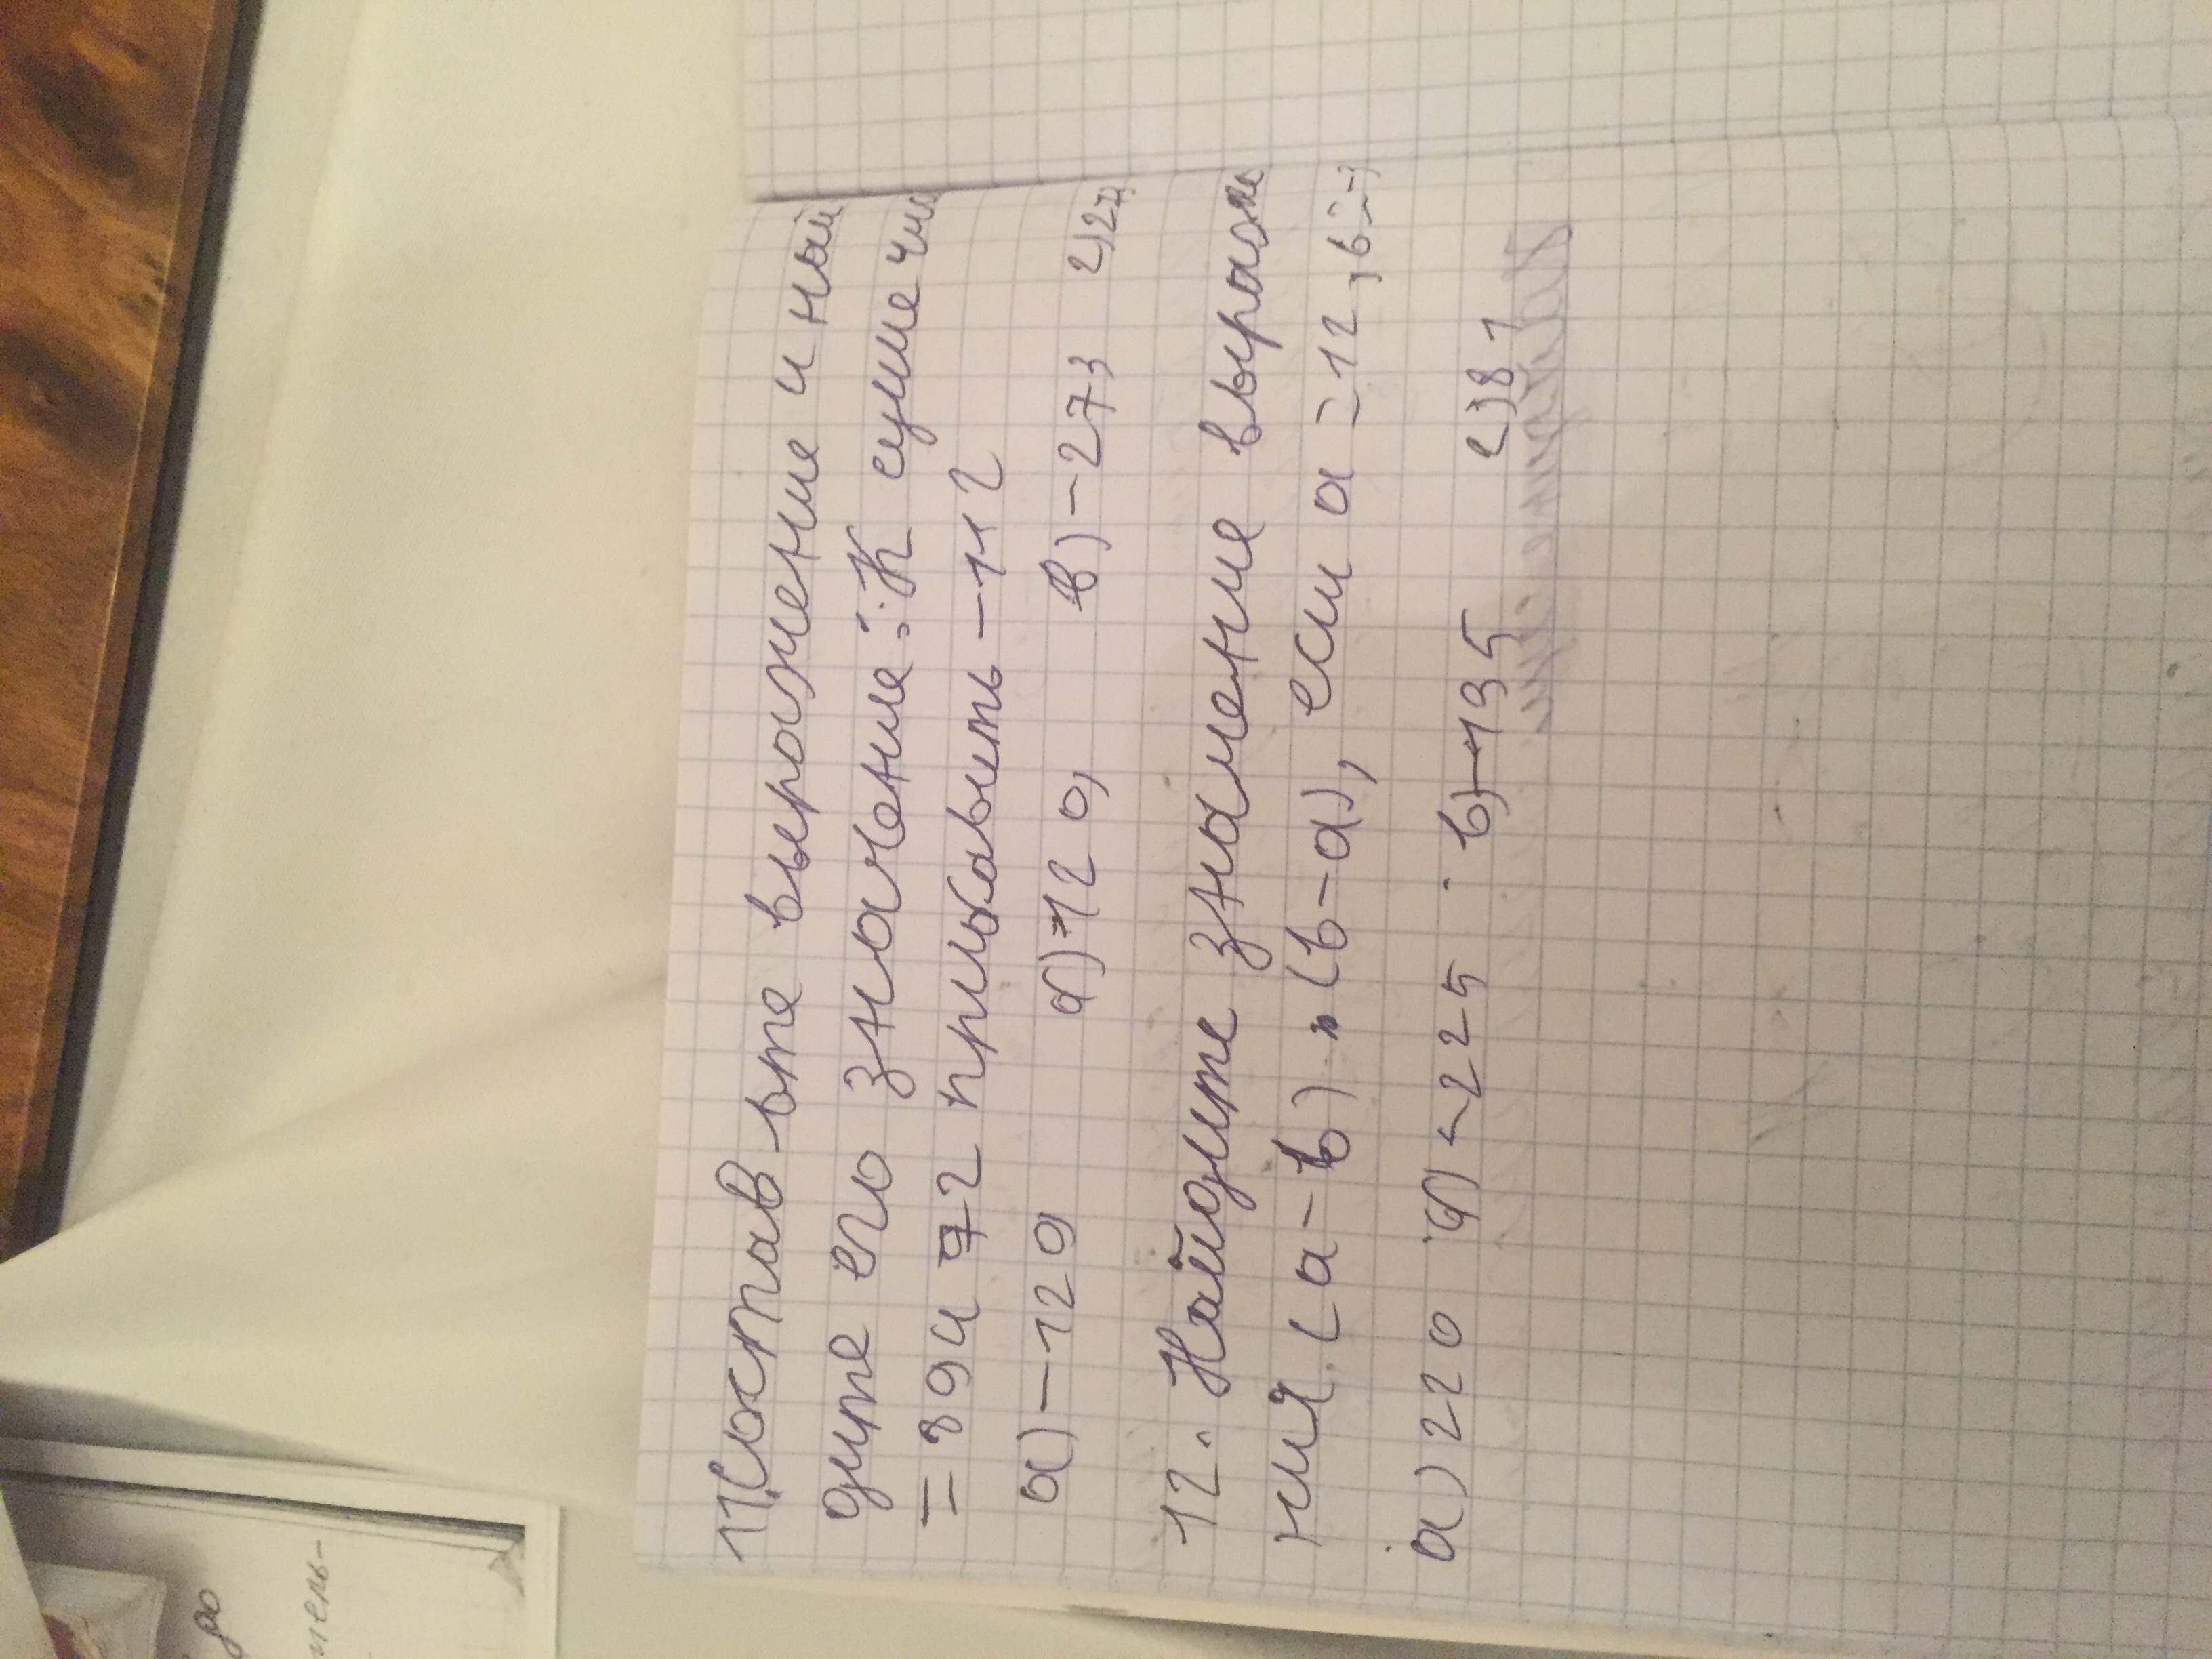 11. Составьте выражение и най
дите его значение: К сумме чис
-89 и 72 прибавить -112
а) -129 б) -120, в) -273 г) 27
12. Найдите значение выраже
ния (а-b).(b-а), если а=-12, b=-
а) 220 б) -225 в) -195 г) 81
до
тель-